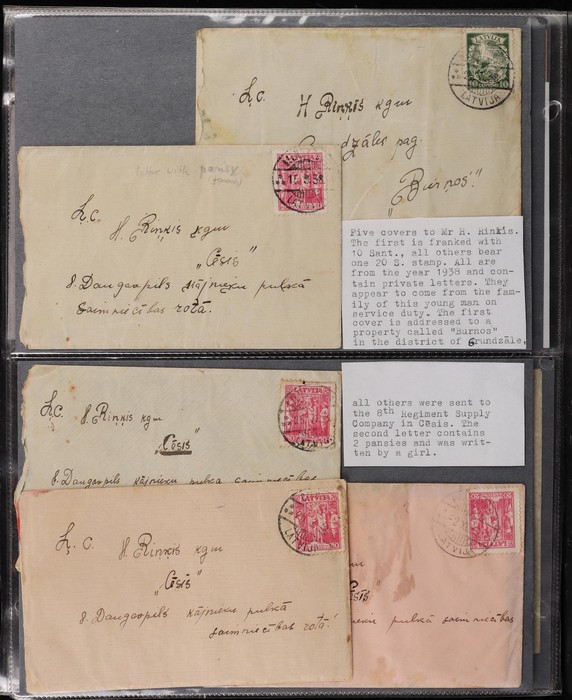 Ļ. C.
H Riņķis kgm
Grundzāles pag.
"Burnos"
LATVIJA
10 10
LATVIJA
letter with pansy
Ļ. C.
H. Riņķis kgm
„Cēsis"
8. Daugavpils kājnieku pulkā
saimniecības rotā.
Five covers to Mr H. Rinkis.
The first is franked with
10 Sant., all others bear
one 20 S. stamp. All are
from the year 1938 and con-
tain private letters. They
appear to come from the fam-
ily of this young man on
service duty. The first
cover is addressed to a
property called "Burnos"
in the district of Grundzāle,
Ļ. C.
H. Riņķis kgm
„Cēsis"
8. Daugavpils kājnieku pulka saimniecības
all others were sent to
the 8th Regiment Supply
Company in Cēsis. The
second letter contains
2 pansies and was writ-
ten by a girl.
LATVIJA
Ļ. C.
H. Riņķis kgm
„Cēsis"
8. Daugavpils kājnieku pulkā
saimniecības rotā.
LATVIJA
kgm
Cēsis"
kājnieku pulkā saimniecības